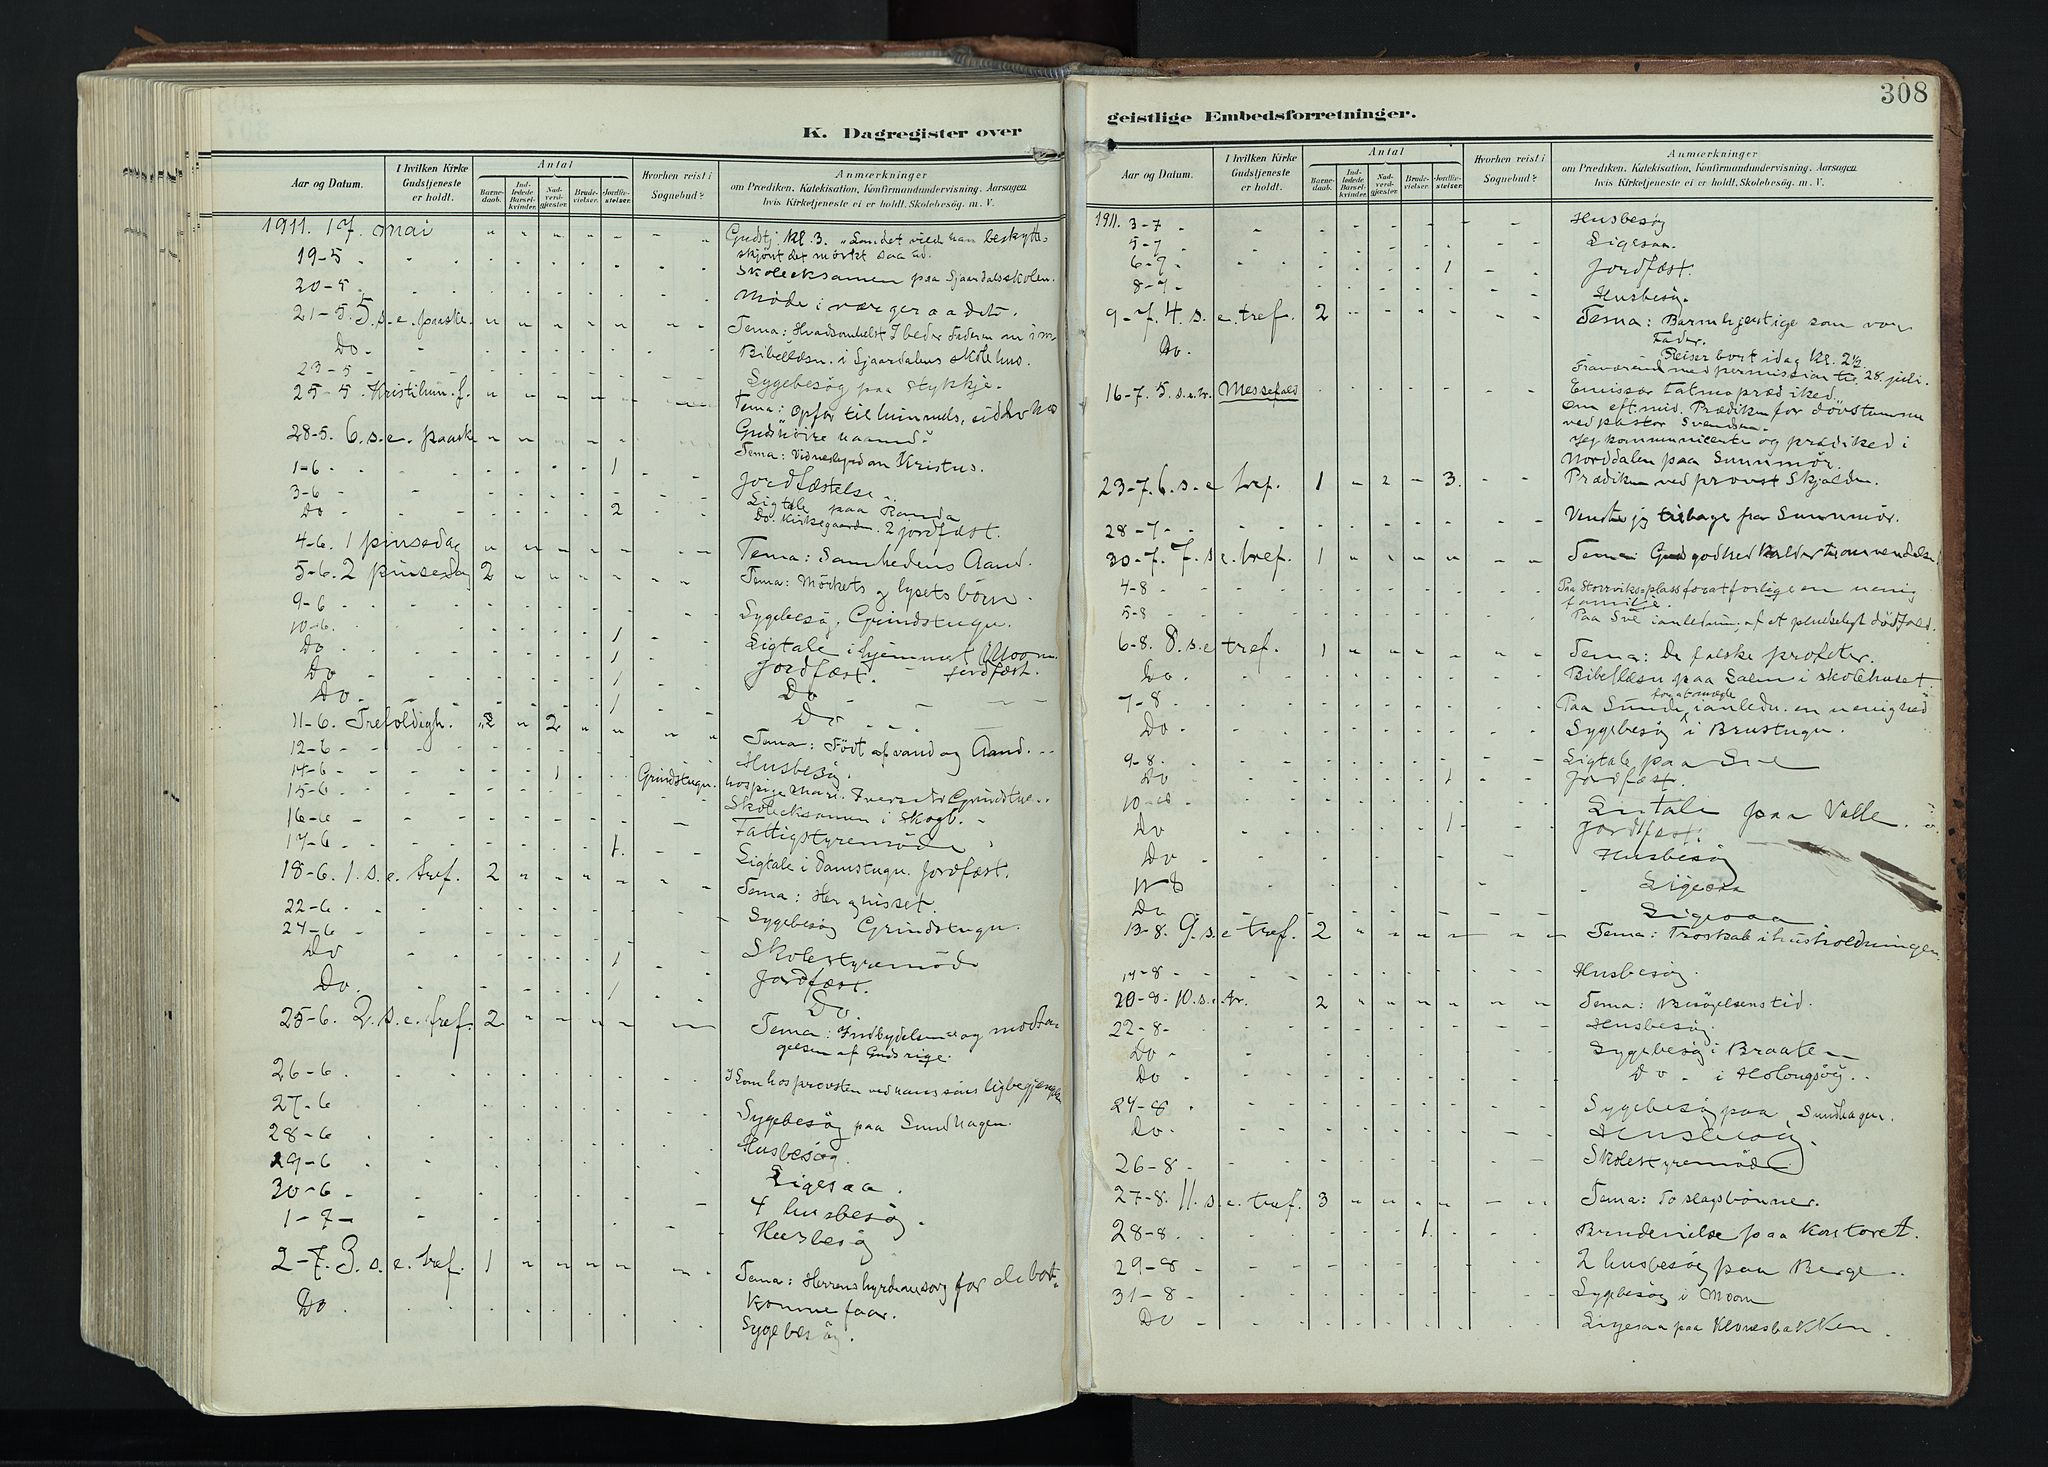 K. Dagregister over
Aar og Datum. I hvilken Kirke Gudstjeneste er holdt. Antal Barnedaab. Indledede Barselkvinder. Nadverdgjæster. Brudevielser. Jordfæstelser. Hvorhen reist i Sognebud? Anmærkninger
om Prædiken, Katekisation, Konfirmandundervisning, Aarsagen
hvis Kirketjeneste ei er holdt, Skolebesøg m. V.
1911. 17. mai Gudstj. Kl. 3. "Landet vil han beskytte
skjönt det mörkt saa ud.
19-5 Skoleeksamen paa Sjaardalsskolen.
20-5 Møde i værgeraadet.
21-5. 5. s. e. paaske. Tema: Hvadsomhelst I beder Faderen om i m
Do. Bibellæsn. i Sjaardalens skolehus.
23-5 Sygebesøg paa Stykkje.
25-5 Kristi him. f. Tema: Opfor til himmels,
Guds høire haand.
28-5. 6. s. e. paaske Tema: Vidnesbyrd om Kristus.
1-6 1 Jordfæstelse.
3-6 Ligtale paa Randa
Do 2 Do. Kirkegaarden. 2 jordfæst.
4-6. 1 pinsedag Tema: Sandhedens Aand.
5-6. 2 pinsedag 2 Tema: Mörkets og lysets börn.
9-6 Sygebesög, Grindstugu.
10-6. 1 Ligtale i hjemmet Moom. jordfæst.
Do 1 Jordfæst.
Do 1 Do
Do 1 Do
11-6. Trefoldigh. 2 2 Tema: Födt af vand og Aand.
12-6 Husbesög.
14-6 1 Grindstugu. hos pige Mari Iversdtr Grindstu..
15-6 Skoleeksamen i Skogb.
16-6 Fattigstyremöde
17-6 1. Ligtale i Damstugu. Jordfæst.
18-6. 1. s. e. tref. 2 Tema: Her og hisset.
22-6 Sygebesög Grindstugu.
24-6 Skolestyremöde
Do 1 Jordfæst.
Do. 1 Do.
25-6. 2. s. e. tref. 2 Tema: Indbydelsen og modta-
gelsen af Guds rige.
26-6 Kom hos provsten ved hans söns ligbegjængelse
27-6 Sygebesög paa Sundhagen.
28-6 Husbesög.
29-6 Ligesaa.
30-6 4 husbesög.
1-7 Husbesög
2-7. 3. s. e. tref. 1 Tema: Herrens hyrdeomsorg for de bort-
komne faar.
Do Sygebesög.
308
geistlige Embedsforretninger.
Aar og Datum. I hvilken Kirke Gudstjeneste er holdt. Antal Barnedaab. Indledede Barselkvinder. Nadverdgjæster. Brudevielser. Jordfæstelser. Hvorhen reist i Sognebud? Anmærkninger
om Prædiken, Katekisation, Konfirmandundervisning, Aarsagen
hvis Kirketjeneste ei er holdt, Skolebesøg m. V.
1911. 3-7 Husbesög
5-7 Ligesaa.
6-7 1 Jordfæst.
8-7 Husbesög.
9-7. 4. s. e. tref. 2 Tema: Barmhjertige som vor
Fader.
Do. Reiser bort idag Kl. 2½
Fraværende med permission til 28. juli.
16-7. 5. s. e. tr. Messefald Emissær Tatmo prædiked.
Om eft.mid. Prædiken for dövstumme
ved pastor Svendsen.
Jeg kommunicerte og prædiked i
Norddalen paa Sunnmör.
23-7. 6. s. e. tref. 1 2 3. Prædiken ved provst Skjölden.
28-7 Vendte jeg tilbage fra Sunnmör.
30-7. 7. s. e. tref. 1 Tema: Guds godhed kalder til omvendelse
4-8 Paa Storviks-plass for at forlige en uenig
familje.
5-8 Paa Sve i anledn. af et pludseligt dödfald.
6-8. 8. s. e tref. 1 Tema: De falske profeter.
Do. Bibellæsn. paa Salen i skolehuset
7-8 Paa Sunde for at mægle i anledn. en uenighed
Do Sygebesög i Brustugu.
9-8. Ligtale paa Sve
Do 1 Jordfæst.
10-8 Ligtale paa Valle.
Do 1 Jordfæst.
Do Husbesög
11-8 Ligesaa
Do Ligesaa
13-8. 9. s. e tref. 2 Tema: Troskab i husholdningen.
14-8 Husbesög.
20-8. 10. s. e. tr. 2 Tema: Besögelsens tid.
22-8 Husbesög.
Do Sygebesög i Braate
Do Do i
24-8 Sygebesög paa Sundhagen.
Do. Husbesög.
26-8 Skolestyremöde
27-8. 11. s. e. tref. 3 Tema: To slags bönner.
28-8 1. Brudevielse paa Kontoret.
29-8 2 husbesög paa Berge.
31-8 Sygebesög i Moom
Do Ligesaa paa Klonesbakken.